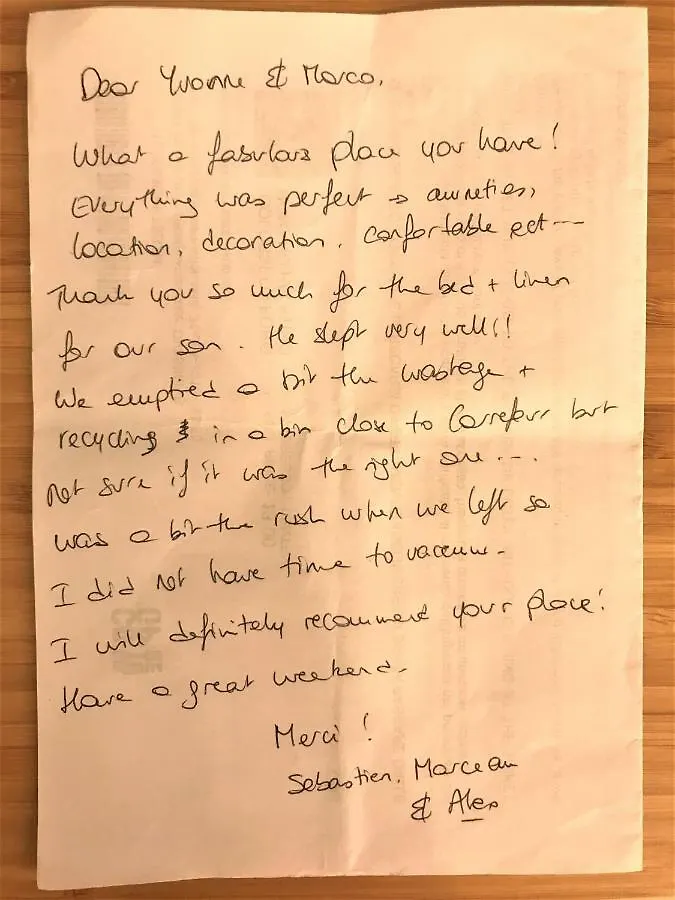 Dear Yvonne & Marco,
What a fabulous place you have!
Everything was perfect → amneties,
location, decoration, confortable ect---
Thank you so much for the bed + linen
for our son. He slept very well!!
We emptied a bit the wastage +
recycling in a bin close to Carrefour but
not sure if it was the right one ---.
was a bit the rush when we left so
I did not have time to vacuum-
I will definitely recommend your place!
Have a great weekend-
Merci !
Sebastien, Marceau
& Alex